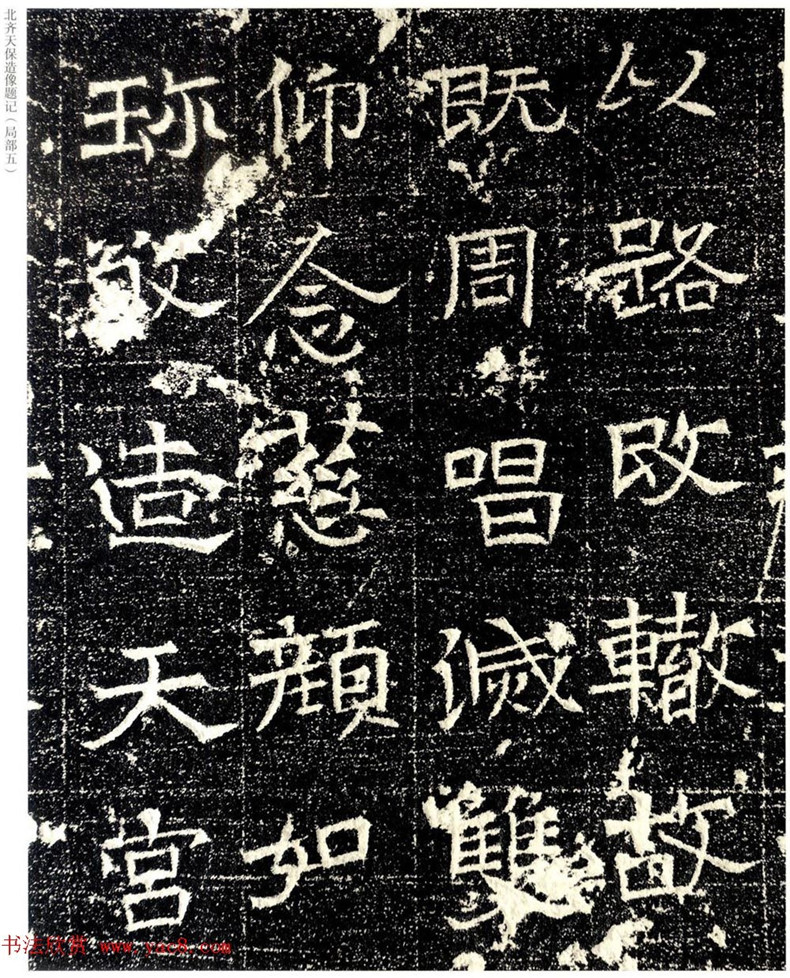 以路改轍故
既周唱滅雙
仰念慈顏如
珎敬造天宮
北齐天保造像题记（局部五）
书法欣赏 www.yac8.com